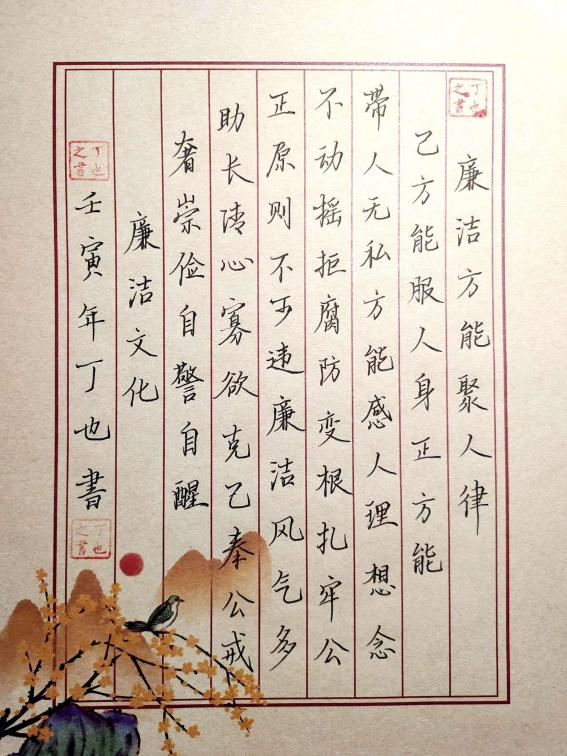 丁也之书
廉洁方能聚人律
己方能服人身正方能
带人无私方能感人理想念
不动摇拒腐防变根扎牢公
正原则不可违廉洁风气多
助长清心寡欲克己奉公戒
奢崇俭自警自醒
廉洁文化
丁也之書
壬寅年丁也書
丁也之書